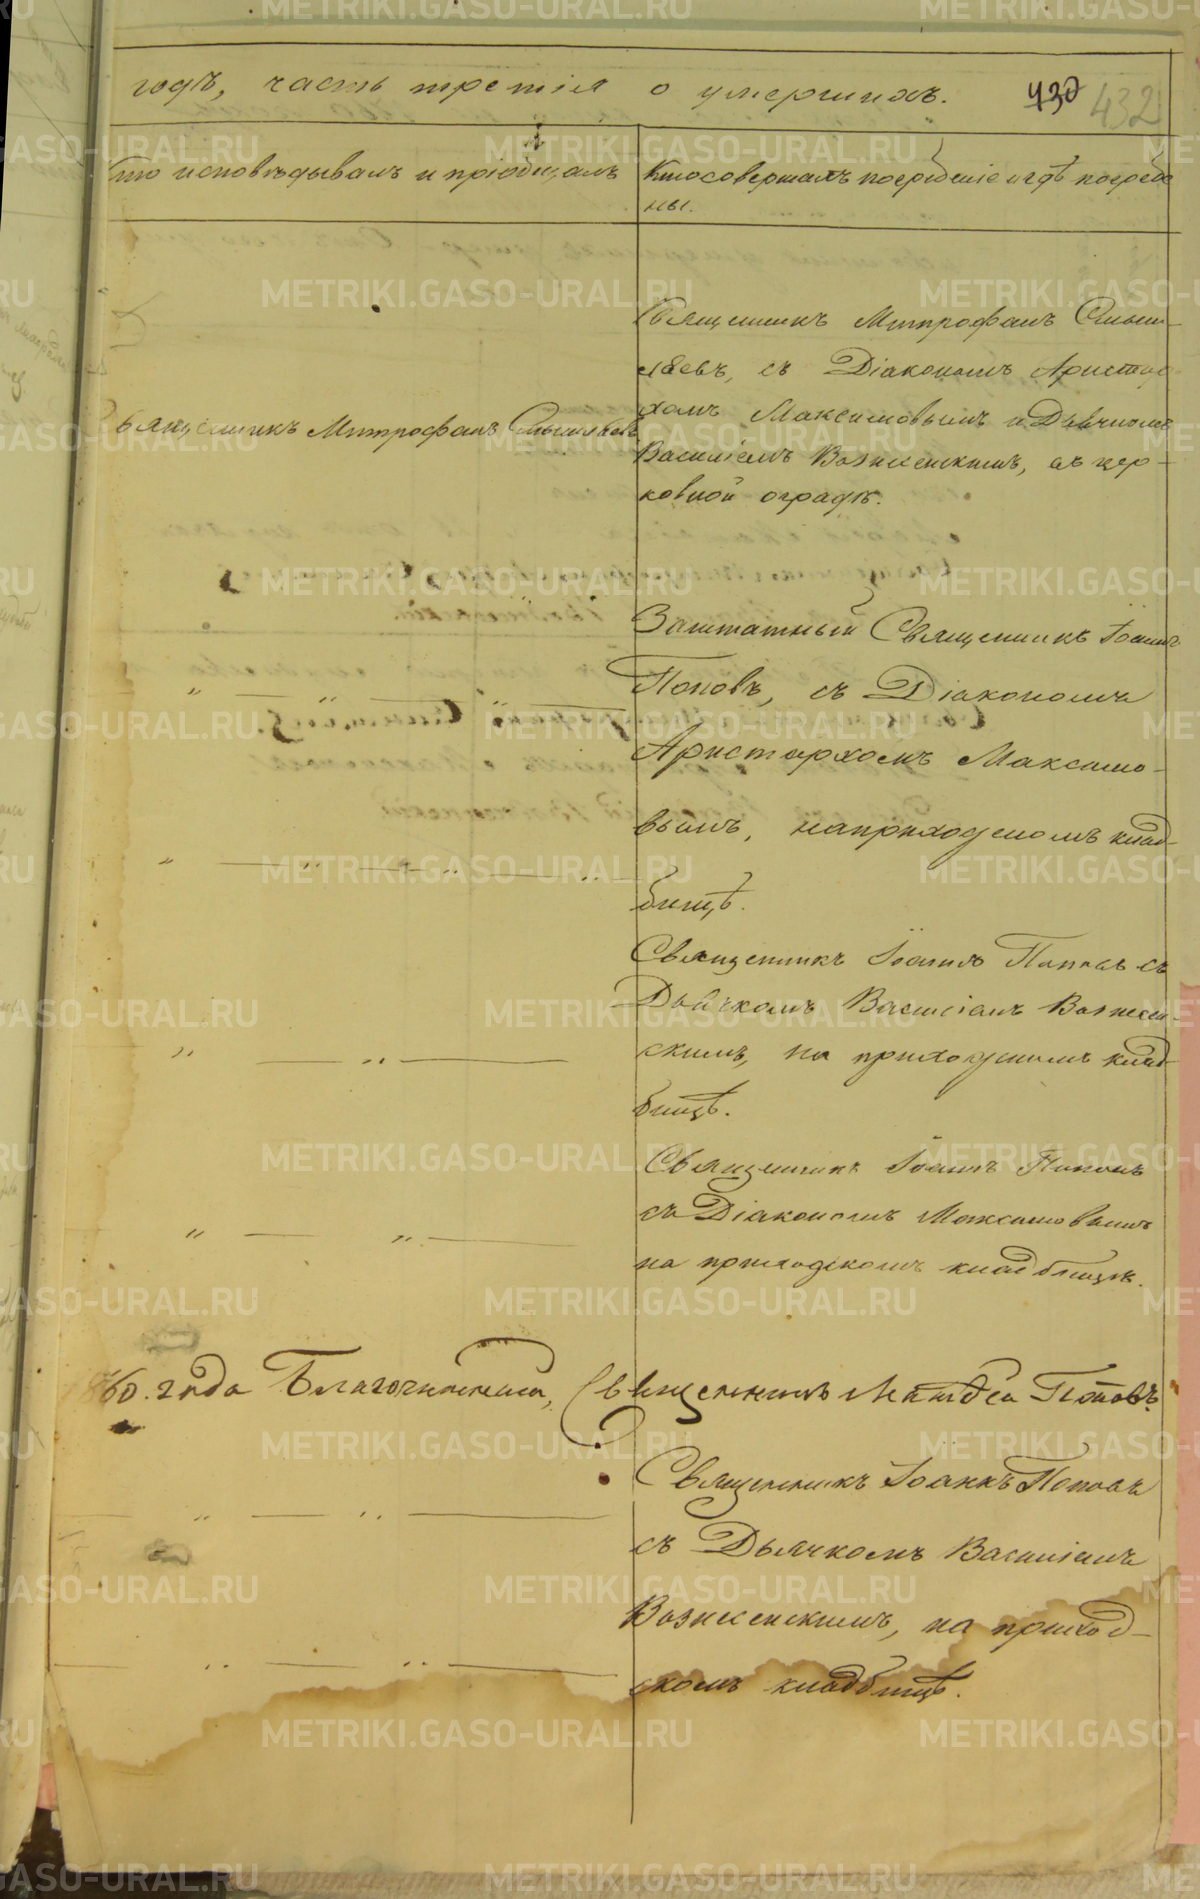 годъ, часть третія о умершихъ. 432
Кто исповѣдывалъ и пріобщалъ
Кто совершалъ погребеніе и гдѣ погребе
ны.
Священникъ Митрофанъ
Священникъ Митрофанъ
съ Діакономъ Аристар
хомъ Максимовымъ и Дьячкомъ
Василіемъ Вознесенскимъ, въ цер-
ковной оградѣ.
Заштатный Священникъ Іоаннъ
Поповъ, съ Діакономъ
Аристархомъ Максимо-
вымъ, на приходскомъ клад-
бищѣ.
Священникъ Іоаннъ Поповъ съ
Дьячкомъ Василіемъ Вознесен-
скимъ, на приходскомъ клад-
бищѣ.
Священникъ Іоаннъ Поповъ
съ Діакономъ Максимовымъ
на приходскомъ кладбищѣ.
60. года Благочинный, Священникъ Поповъ.
Священникъ Іоаннъ Поповъ
съ Дьячкомъ Василіемъ
Вознесенскимъ, на приход-
скомъ кладбищѣ.
METRIKI.GASO-URAL.RU